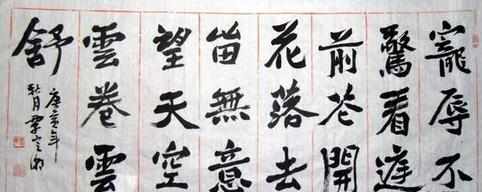 寵辱不
驚看庭
前花開
花落去
留無意
望天空
雲卷雲
舒
庚寅年
秋月